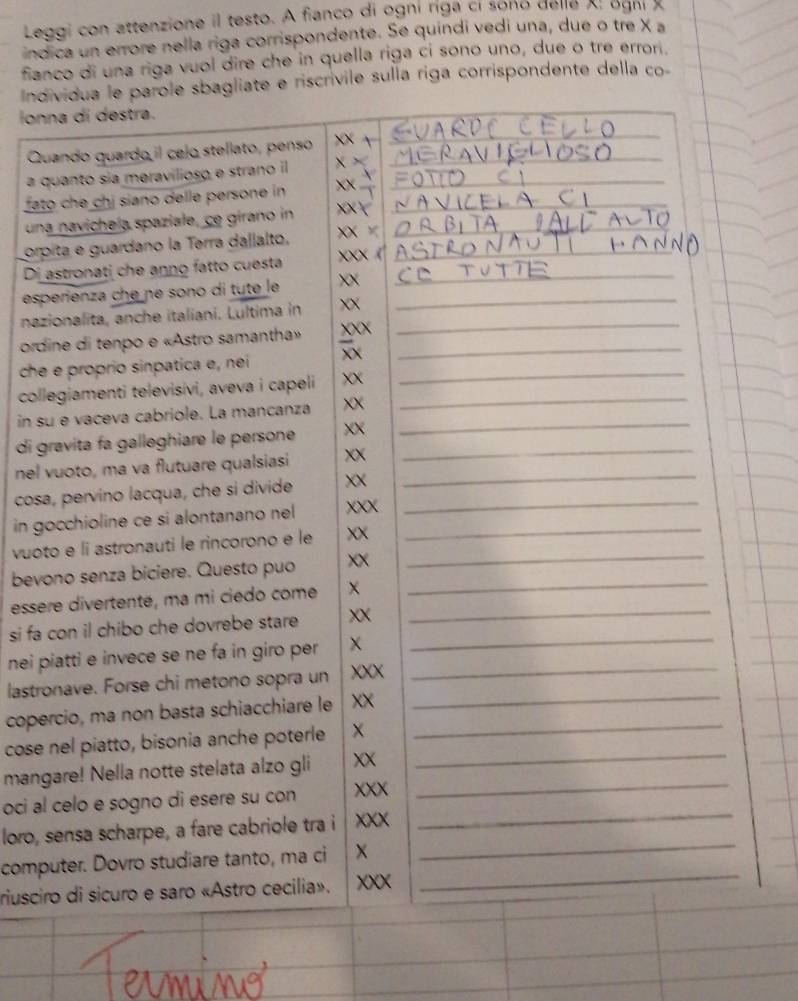 Leggi con attenzione il testo. A fianco di ogni riga ci sono delle X: ogni X
indica un errore nella riga corrispondente. Se quindi vedi una, due o tre X a
fianco di una riga vuol dire che in quella riga ci sono uno, due o tre errori.
Individua le parole sbagliate e riscrivile sulla riga corrispondente della co-
lonna di destra.
Quando guardo il celo stellato, penso XX CELLO
a quanto sia meravilioso e strano il X MERAVIGLIOSO
fato che chi siano delle persone in XX FOTTO CI
una navichela spaziale, ce girano in XXX NAVICELA CI
orpita e guardano la Terra dallalto. XX ORBITA DALL ALTO
Di astronati che anno fatto cuesta XXX ASTRONAUTI HANNO
esperienza che ne sono di tute le XX CE TUTTE
nazionalita, anche italiani. Lultima in XX
ordine di tenpo e «Astro samantha» XXX
che e proprio sinpatica e, nei XX
collegiamenti televisivi, aveva i capeli XX
in su e vaceva cabriole. La mancanza XX
di gravita fa galleghiare le persone XX
nel vuoto, ma va flutuare qualsiasi XX
cosa, pervino lacqua, che si divide XX
in gocchioline ce si alontanano nel XXX
vuoto e li astronauti le rincorono e le XX
bevono senza biciere. Questo puo XX
essere divertente, ma mi ciedo come X
si fa con il chibo che dovrebe stare XX
nei piatti e invece se ne fa in giro per X
lastronave. Forse chi metono sopra un XXX
copercio, ma non basta schiacchiare le XX
cose nel piatto, bisonia anche poterle X
mangare! Nella notte stelata alzo gli XX
oci al celo e sogno di esere su con XXX
loro, sensa scharpe, a fare cabriole tra i XXX
computer. Dovro studiare tanto, ma ci X
riusciro di sicuro e saro «Astro cecilia». XXX